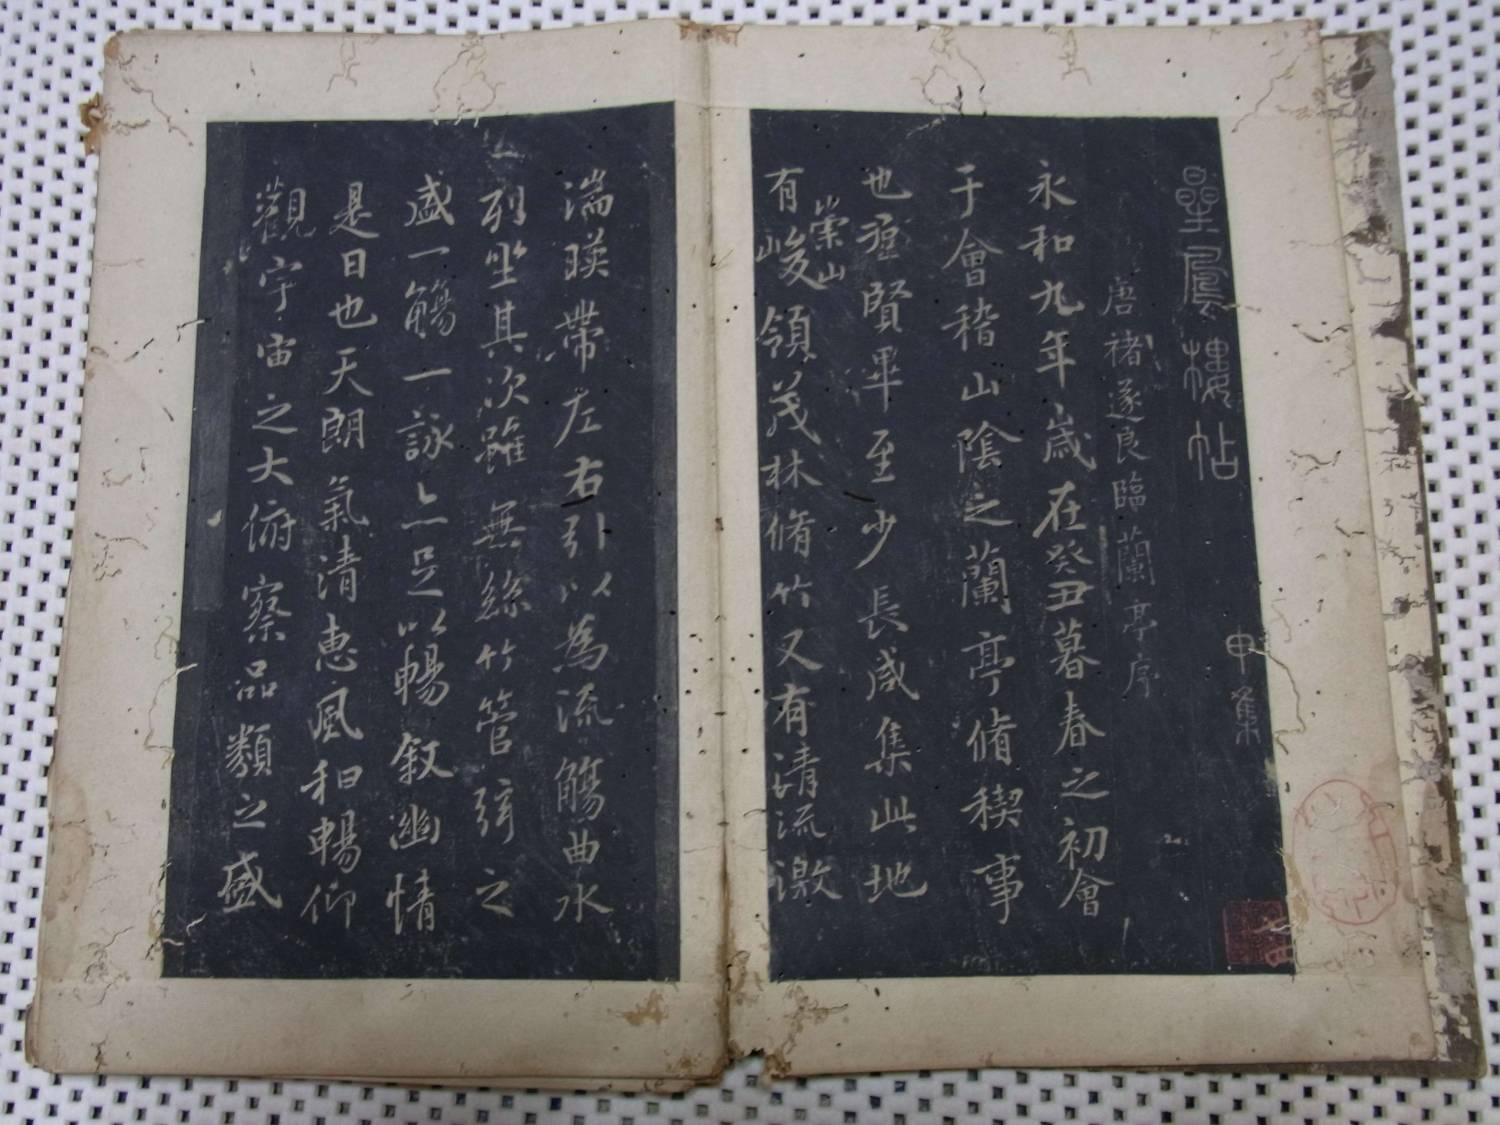 星鳳樓帖
申集
唐褚遂良臨蘭亭序
永和九年歲在癸丑暮春之初會
于會稽山陰之蘭亭脩稧事
也羣賢畢至少長咸集此地
有崇山峻領茂林脩竹又有清流激
湍暎帶左右引以為流觴曲水
列坐其次雖無絲竹管弦之
盛一觴一詠亦足以暢敘幽情
是日也天朗氣清惠風和暢仰
觀宇宙之大俯察品類之盛